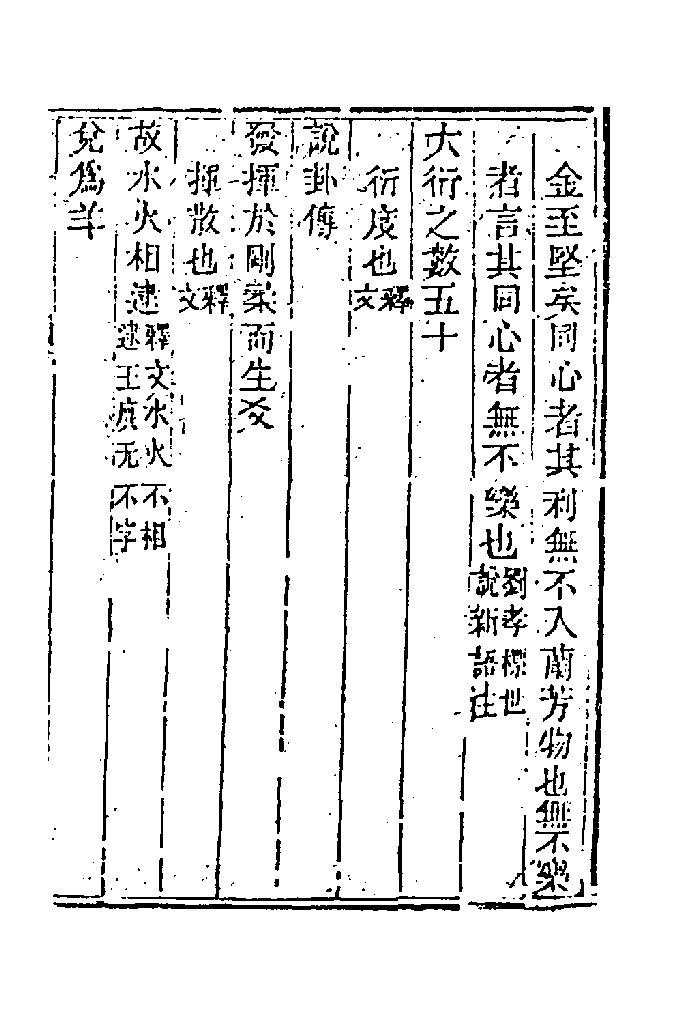 金至堅矣同心者其利無不入蘭芳物也無不樂
者言其同心者無不樂也劉孝標世說新語注
大衍之數五十
衍度也釋文
說卦傳
發揮於剛柔而生爻
揮散也釋文
故水火相逮釋文水火不相逮王廙无不字
兌爲羊